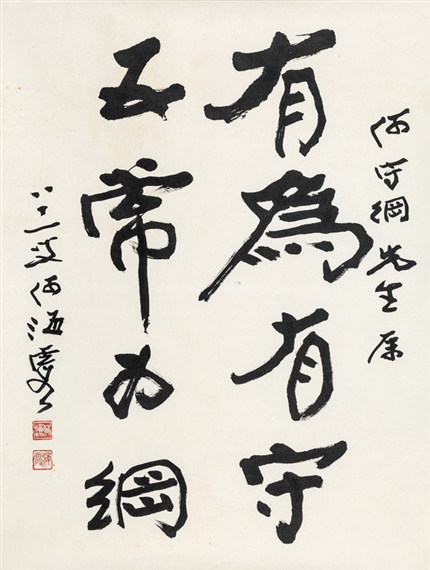 何守綱先生屬
有為有守
五常为綱
八三叟何海霞